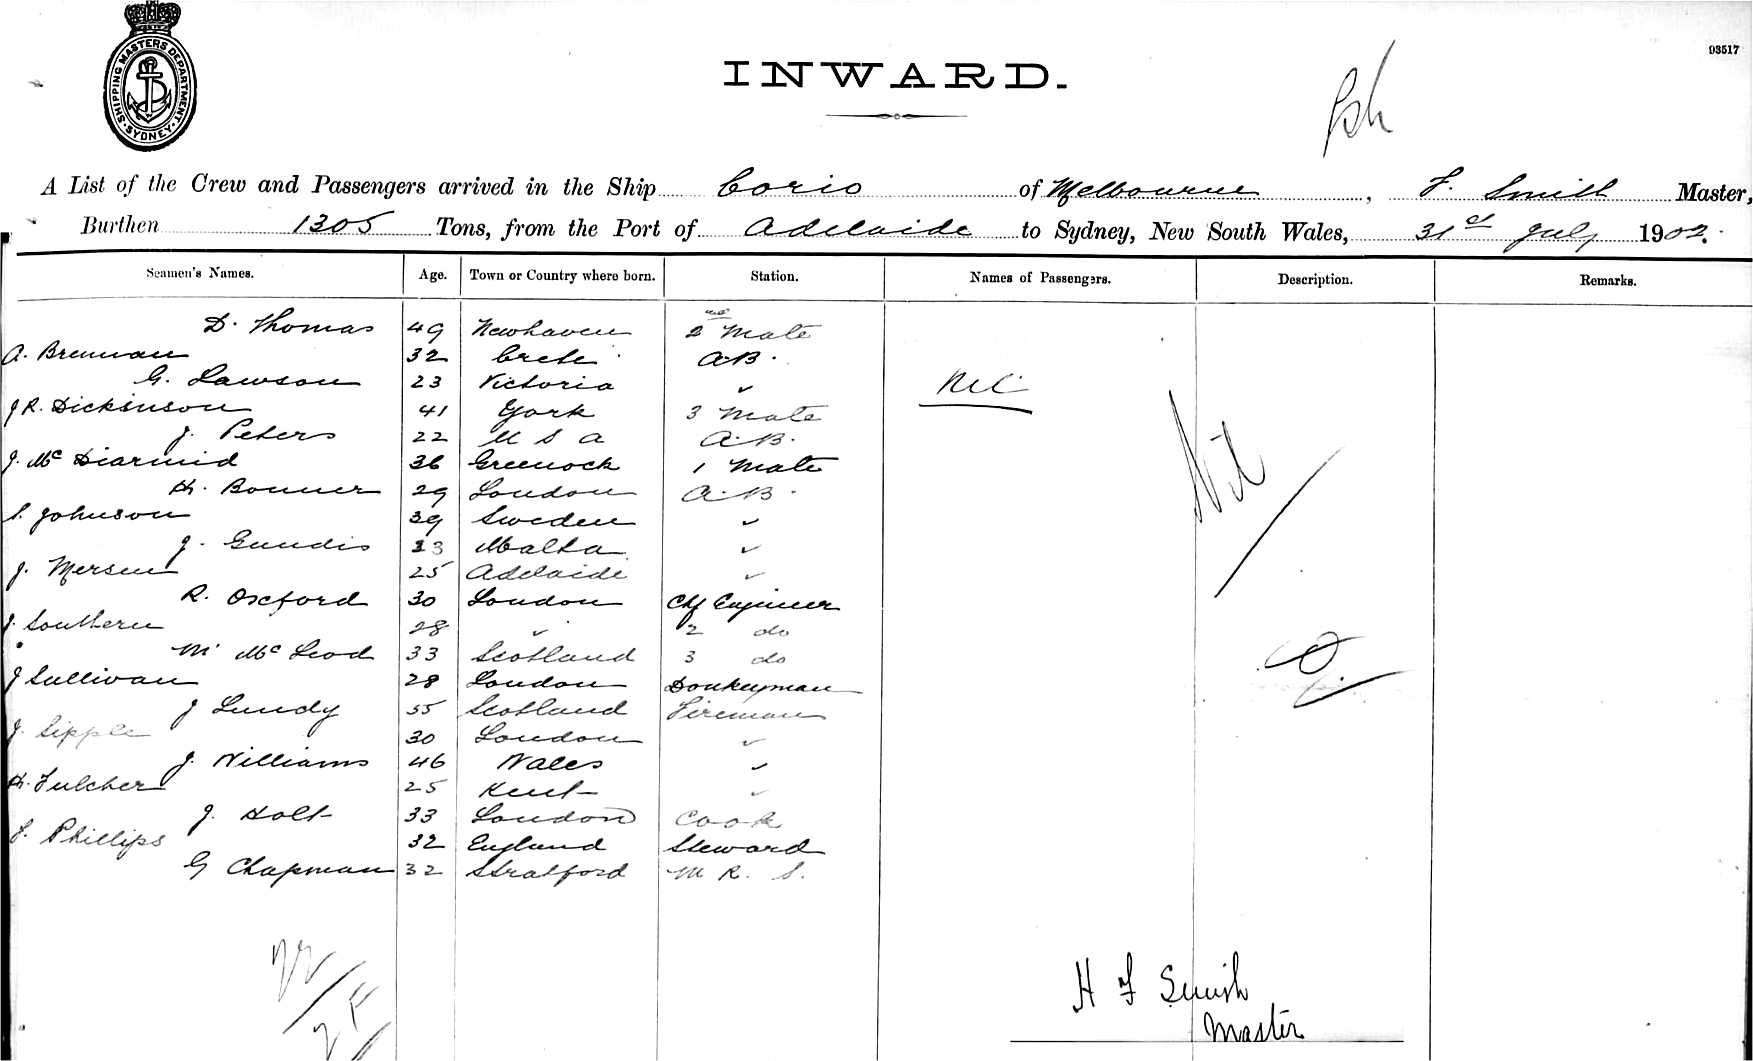 SHIPPING MASTERS DEPARTMENT. SYDNEY
93517
INWARD.
A List of the Crew and Passengers arrived in the Ship Corio of Melbourne, F. Smith Master,
Burthen 1305 Tons, from the Port of Adelaide to Sydney, New South Wales, 31st July 1902.
Seamen's Names. Age. Town or Country where born. Station. Names of Passengers. Description. Remarks.
D. Thomas 49 Newhaven 2nd Mate
A. Brennan 32 Crete A.B.
G. Lawson 23 Victoria ✓ Nil
J R. Dickinson 41 York 3 Mate
J. Peters 22 U S A A.B.
J. Mc Diarmid 36 Greenock 1 Mate Nil
H. Bonner 29 London A.B.
Johnson 39 Sweden ✓
J. Gundis 23 Malta ✓
J. Mersen 25 Adelaide ✓
R. Oxford 30 London Chf Engineer
J. Southern 28 ✓ 2 do
M Mc Leod 33 Scotland 3 do
J Sullivan 28 London Donkeyman
J Lundy 55 Scotland Fireman
J. Sipple 30 London ✓
J. Williams 46 Wales ✓
H. Fulcher 25 Kent ✓
J. Holt 33 London Cook
F. Phillips 32 England Steward
G Chapman 32 Stratford M R. S.
H F Smith
Master